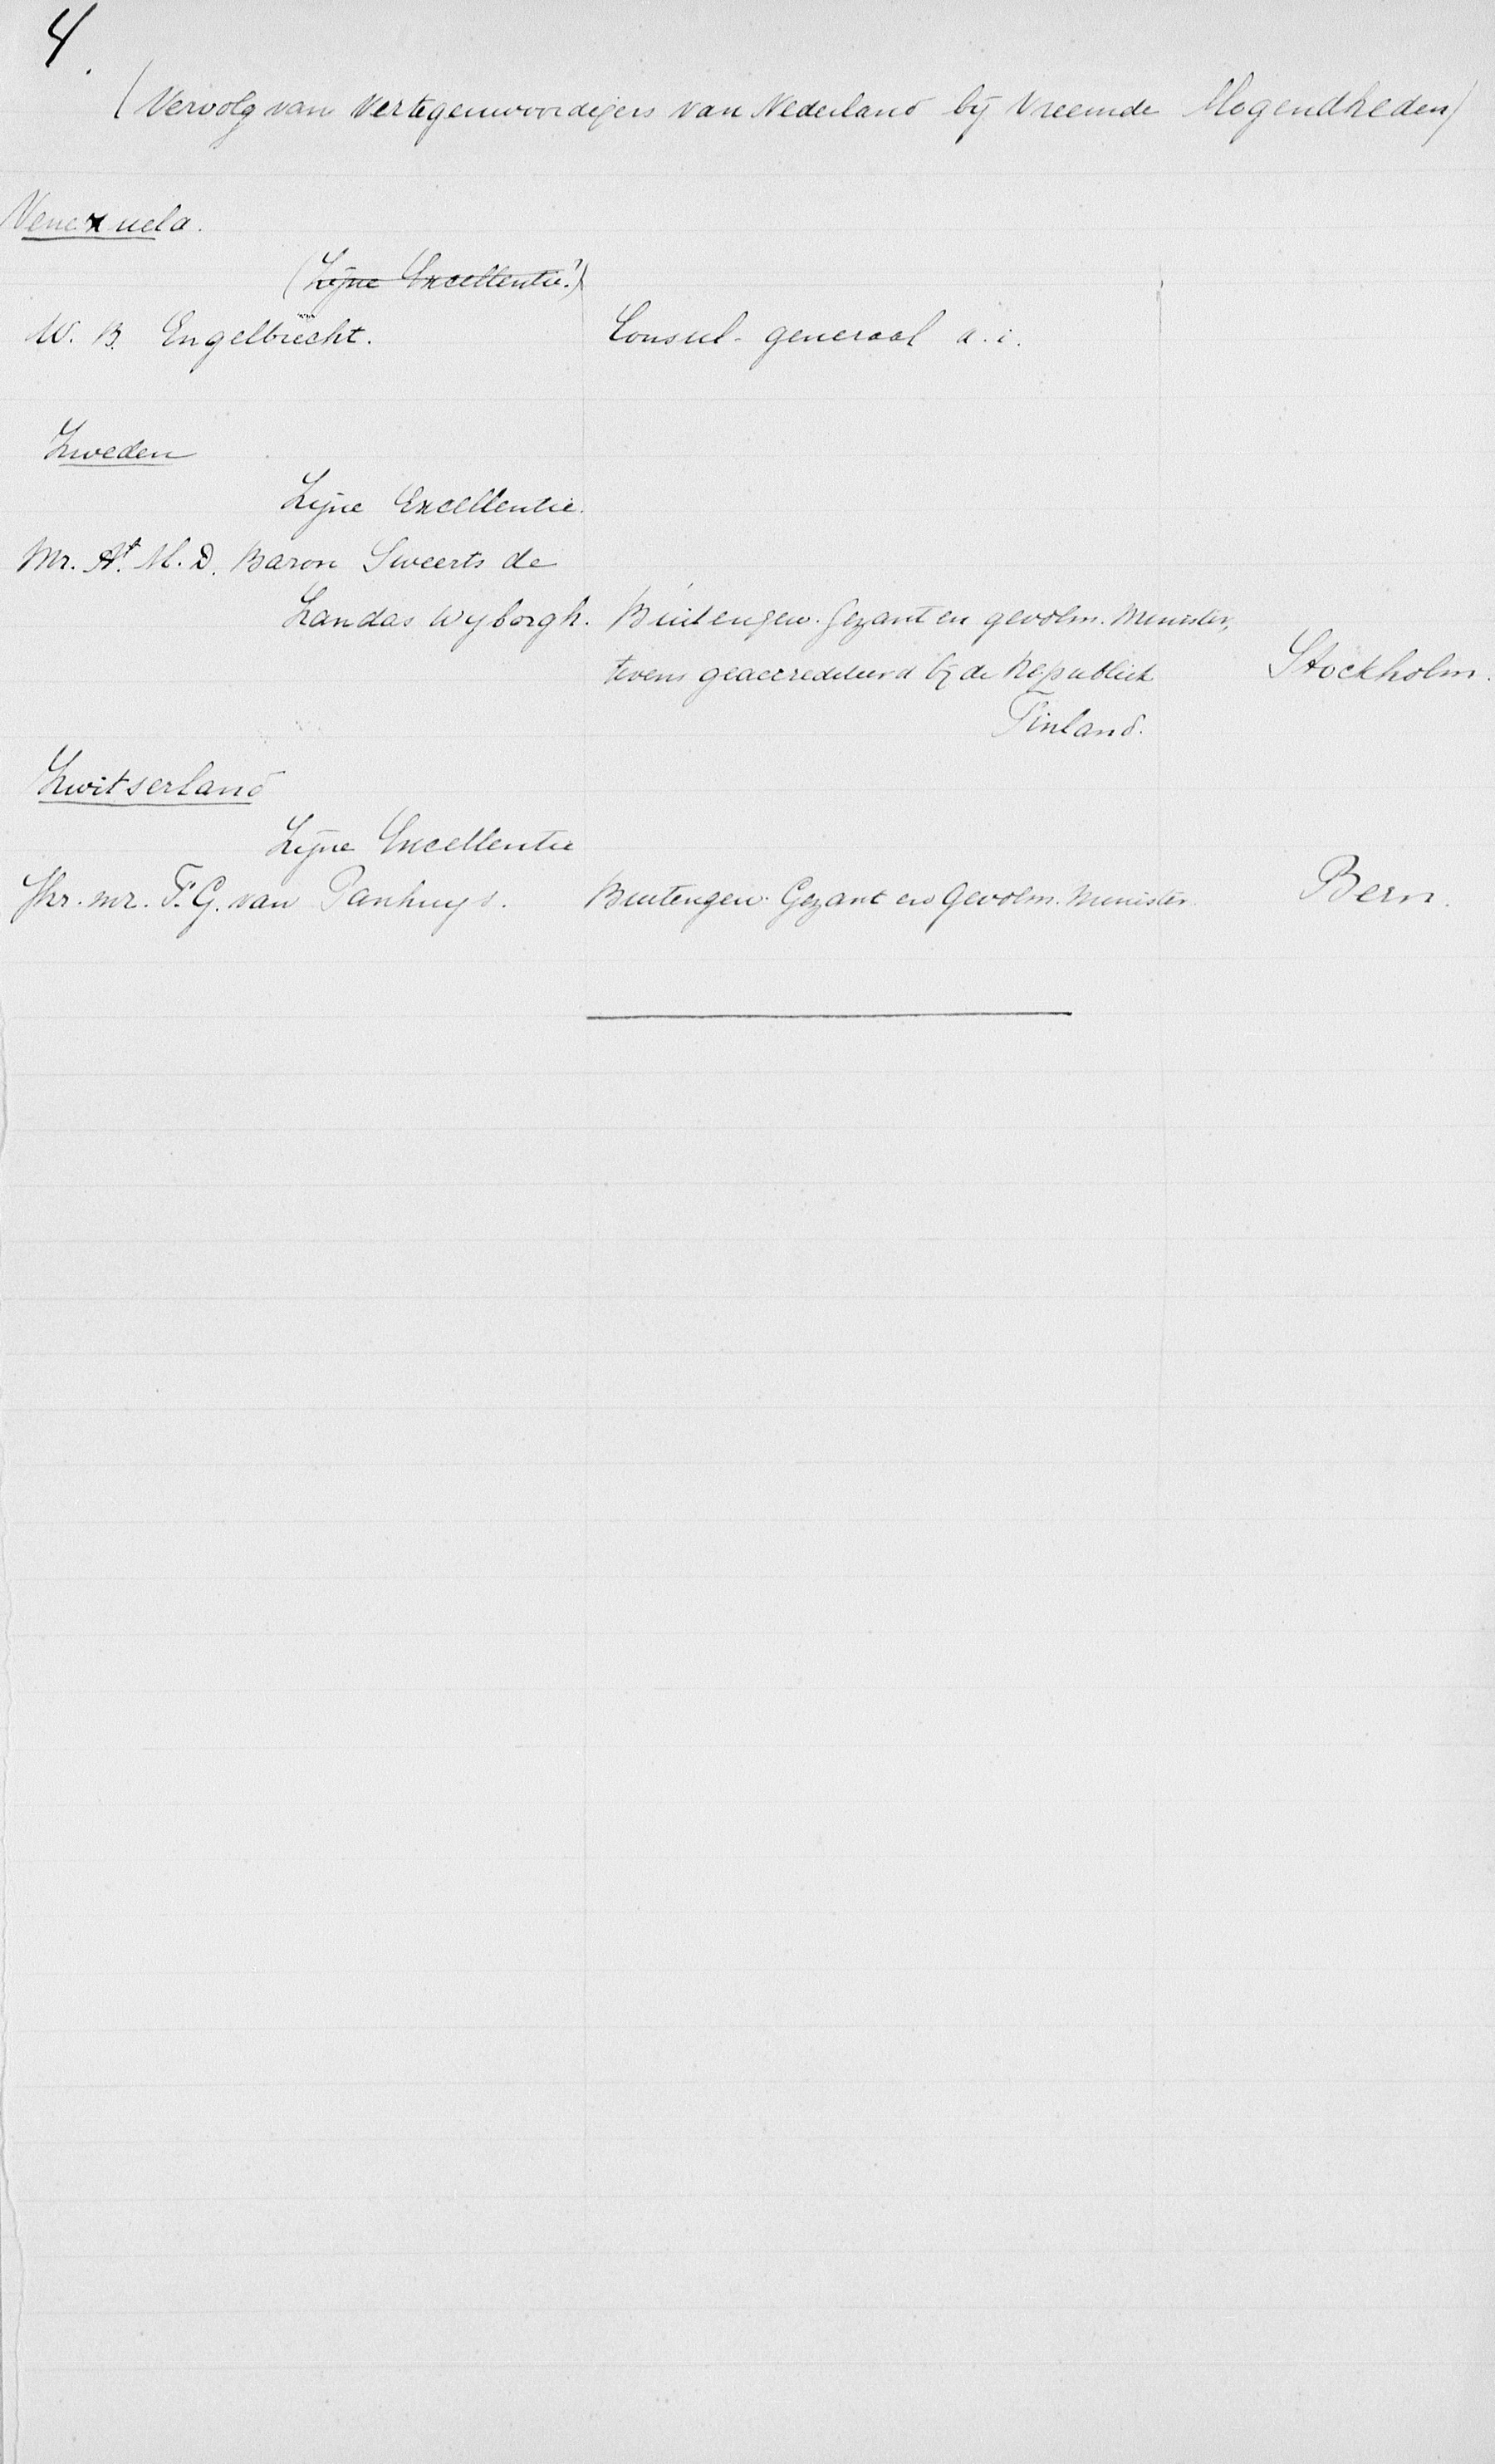 4.
(Vervolg van Vertegenwoordigers van Nederland bij Vreemde Mogendheden)
Venezuela.
(Zijne Excellentie?)
W. B. Engelbrecht. Consul-generaal a.i.
Zweden
Zijne Excellentie.
Mr. A. M. D. Baron Sweerts de
Landas Wyborgh. Buitengew. Gezant en gevolm. Minister,
tevens geaccrediteerd bij de Republiek Stockholm.
Finland.
Zwitserland
Zijne Excellentie
Jhr. mr. F. G. van Panhuys. Buitengew. Gezant en Gevolm. Minister. Bern.